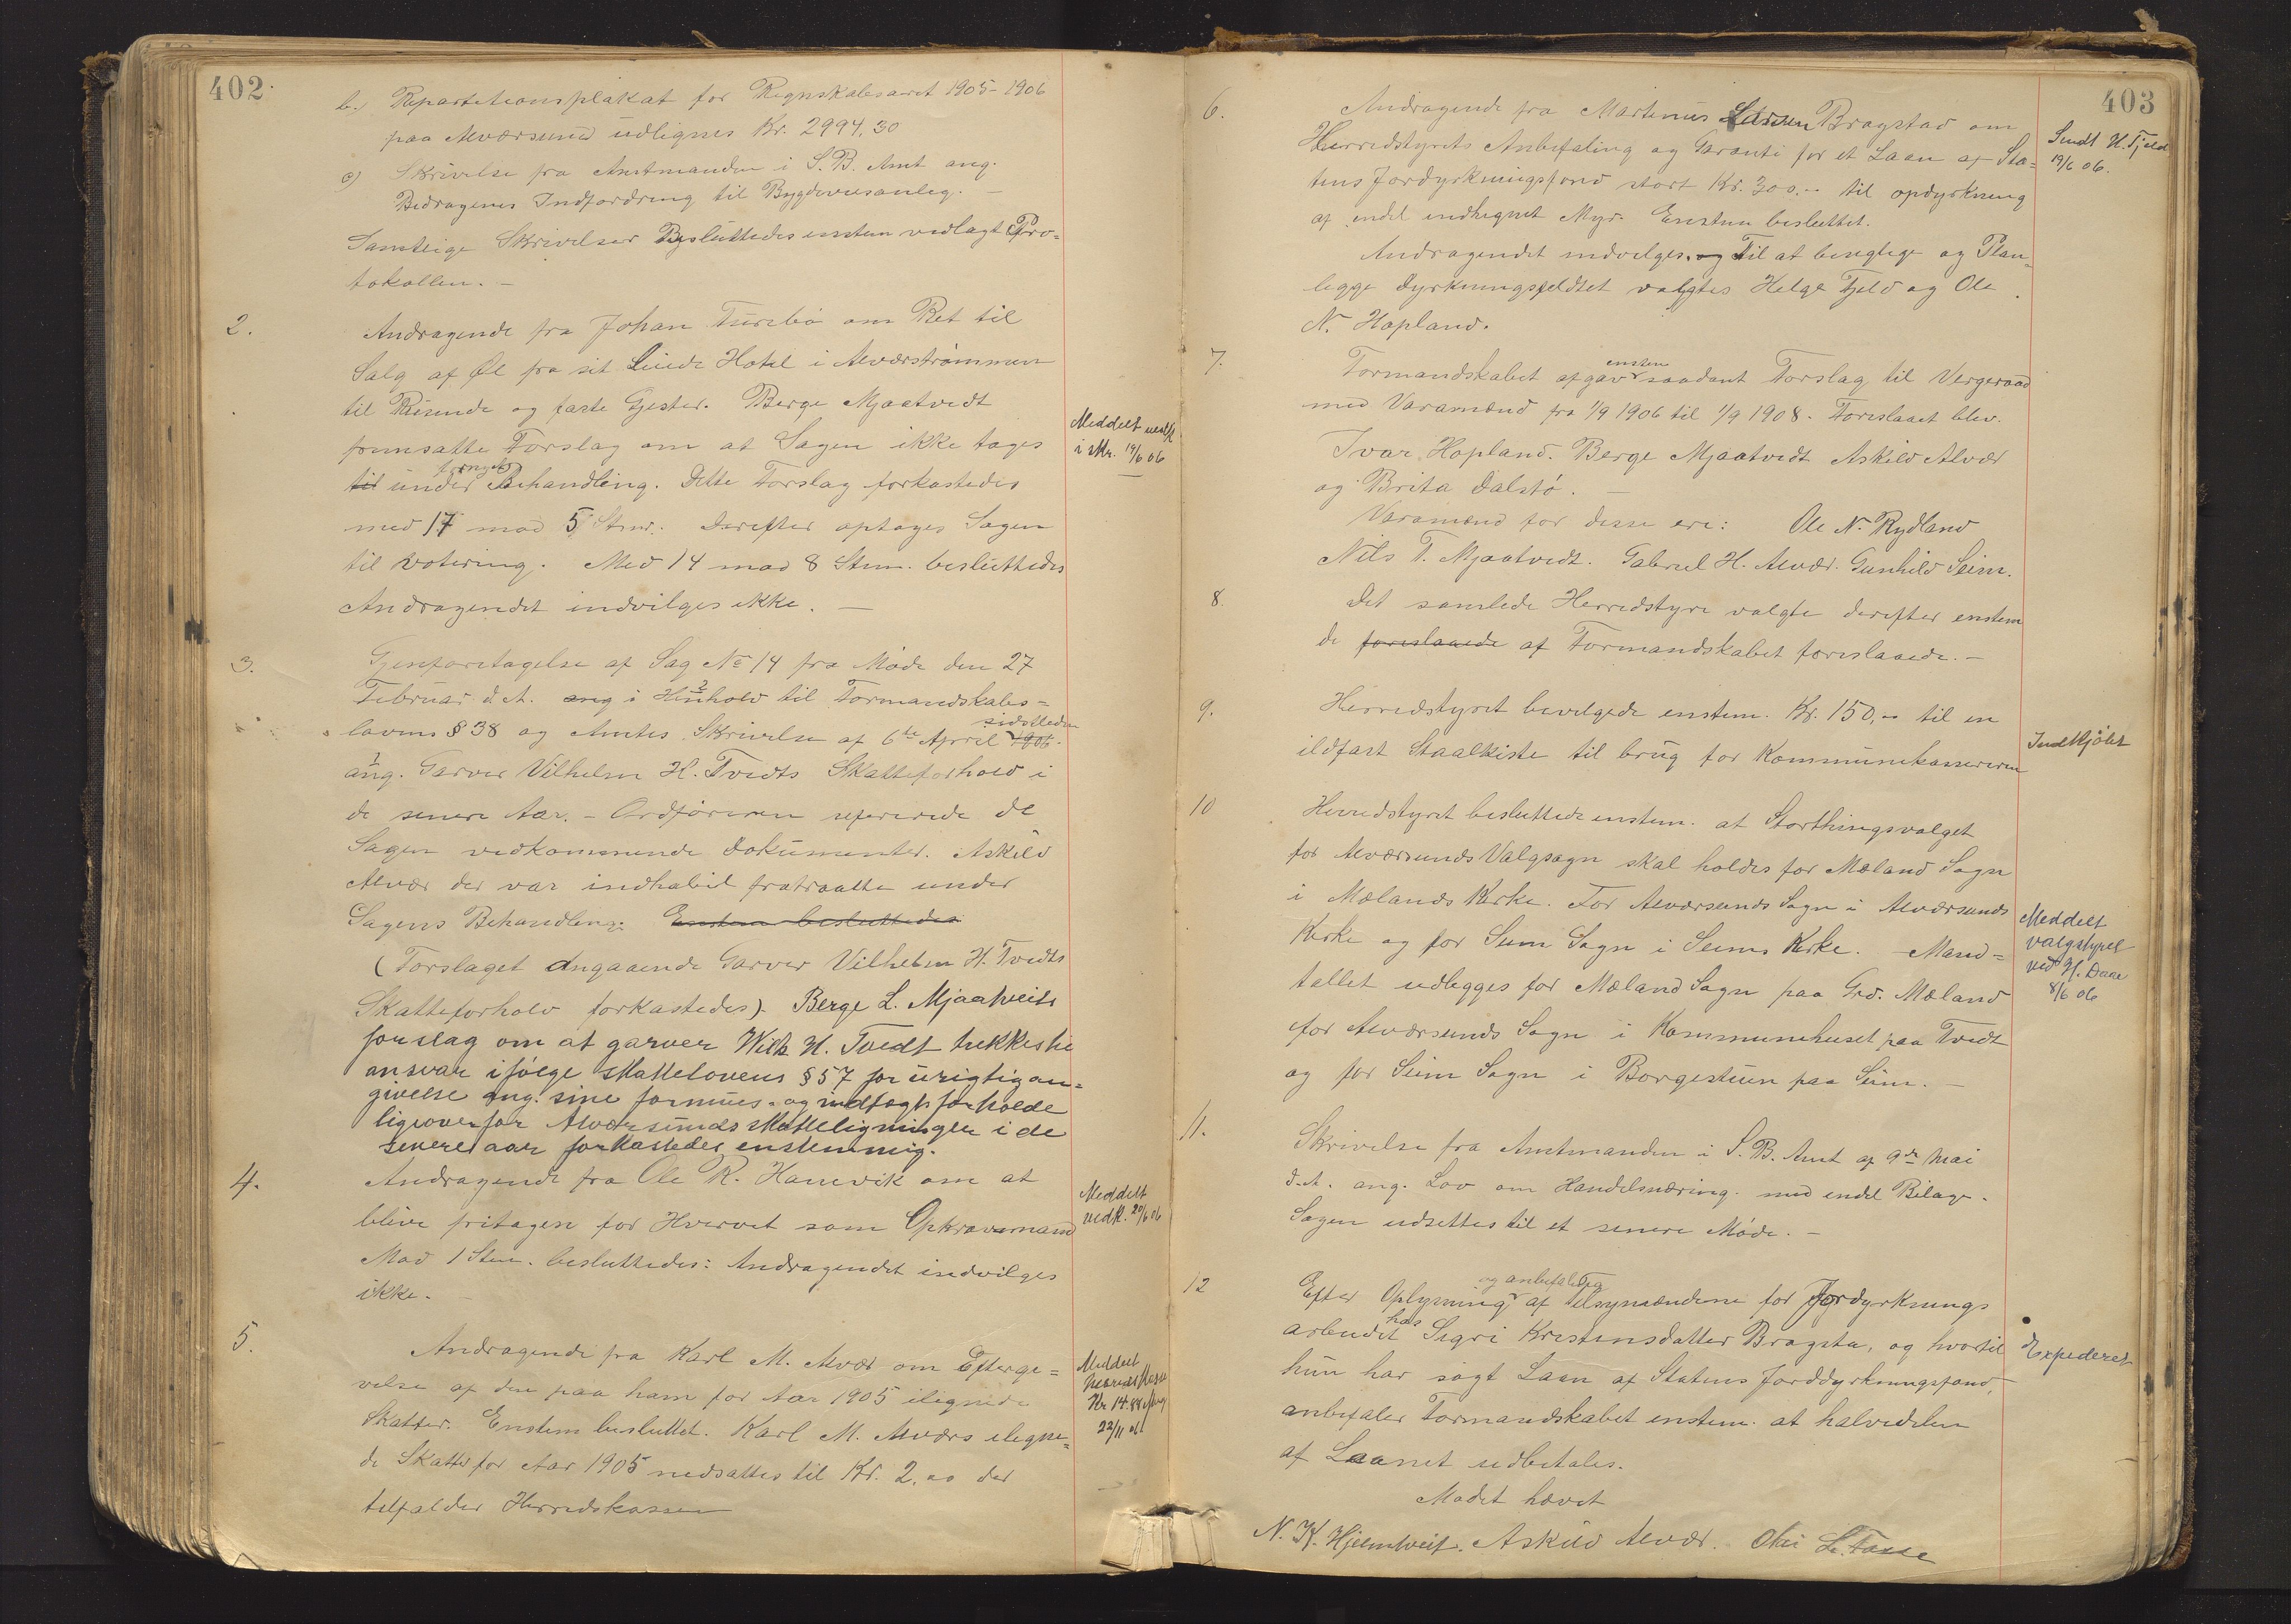 402
b.) Repartitionsplakat for Regnskabsaaret 1905-1906
paa Alværsund udlignes Kr. 2994,30
c) Skrivelse fra Amtmanden i S. B. Amt ang.
Bidragenes Indfordring til Bygdeveisanlæg. –
Samtlige Skrivelser Besluttedes enstem vedlagt Pro=
tokollen. –
2. Andragende fra Johan Turebø om Ret til
Salg af Øl fra sit Hotel i Alværstrømmen
til Reisende og faste Gjester. Berge Mjaatvedt
fremsatte Forslag om at Sagen ikke toges
til under fornyet Behandling. Dette Forslag forkastedes
med 17 mod 5 Stmr. Derefter optoges Sagen
til Votering. Med 14 mod 8 Stem. besluttedes
Andragendet indvilges ikke. –
Meddelt
i Skr. 19/6 06
3. Gjenforetagelse af Sag No 14 fra Møde den 27
Februar d. A. ang i Henhold til Formandskabs=
lovens § 38 og Amtets Skrivelse af 6te April 1906 sidstleden
ang. Garver Vilhelm H. Tvedts Skatteforhold i
de senere Aar. – Ordføreren refererede de
Sagen vedkommende Dokumenter. Askild
Alvær der var indhabil fratraatte under
Sagens Behandling: Enstem besluttedes
(Forslaget angaaende Garver Vilhelm H. Tvedts
Skatteforhold forkastedes). Berge L. Mjaatveits
forslag om at garver Wilh H. Tvedt trekkes til
ansvar ifølge skattelovens § 57 for urigtig an=
givelse ang. sine formues- og indtægts forholde
ligeoverfor Alværsunds skatteligninger i de
senere aar forkastedes enstemmig.
4. Andragende fra Ole R. Hanevik om at
blive fritagen for Hvervet som Opkrævermand
Mod 1 Stem. besluttedes: Andragendet indvilges
ikke. –
Meddelt
vedk. 20/6 06
5. Andragende fra Karl M. Alvær om Efterge=
velse af den paa ham for Aar 1905 ilignede
Skatter. Enstem besluttet. Karl M. Alværs iligne=
de Skatter for Aar 1905 nedsattes til Kr. 2,00 der
tilfalder Herredskassen
Meddelt
Kr 14.44
22/11 06
403
6. Andragende fra Martinus Larsen Bragstad om
Herredstyrets Anbefaling og Garanti for et Laan af Sta=
tens Jordyrkningsfond stort Kr. 300.– til opdyrkning
af endel indhegnet Myr. Enstem besluttet.
Andragendet indvilges. og Til at besigtige og Plan=
legge dyrkningsfeldtet valgtes Helge Fjeld og Ole
N. Hopland.
Sendt H. Fjeld
19/6 06.
7. Formandskabet afgav enstem saadant Forslag til Vergeraad
med Varamænd fra 1/9 1906 til 1/9 1908. Foreslaaet blev.
Ivar Hopland. Berge Mjaatvedt Askild Alvær
og Brita Dalstø. –
Varamænd for disse ere: Ole N. Rydland
Nils T. Mjaatvedt. Gabriel H. Alvær. Gunhild Seim.
8. Det samlede Herredstyre valgte derefter enstem
de foreslaaede af Formandskabet foreslaaede. –
9. Herredstyret bevilgede enstem. Kr. 150,– til en
ildfast Staalkiste til brug for Kommunekassereren
Indkjøbt
10 Herredstyret besluttede enstem. at Storthingsvalget
for Alværsunds Valgsogn skal holdes for Mæland Sogn
i Mælands Kirke. For Alværsunds Sogn i Alværsunds
Kirke og for Seim Sogn i Seims Kirke. – Mand=
tallet udlegges for Mæland Sogn paa Grd. Mæland
for Alværsunds Sogn i Kommunehuset paa Tvedt
og for Seim Sogn i Borgestuen paa Seim. –
Meddelt
valgstyret
ved H. Daae
8/6 06
11. Skrivelse fra Amtmanden i S. B. Amt af 9de Mai
d. A. ang. Lov om Handelsnæring. med endel Bilage.
Sagen udsettes til et senere Møde. –
12 Efter Oplysning og anbefaling af Tilsynsmændene for Jordyrknings
arbeidet hos Sigri Kristensdatter Bragsta, og hvortil
hun har søgt Laan af Statens Jorddyrkningsfond,
anbefaler Formandskabet enstem. at halvedelen
af Laanet udbetales.
Expederet
Mødet hævet
N. K. Hjelmtveit. Askild Alvær. L. Fosse